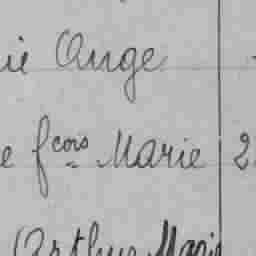 ie Ange
e fcois Marie 2
Arthur Marie